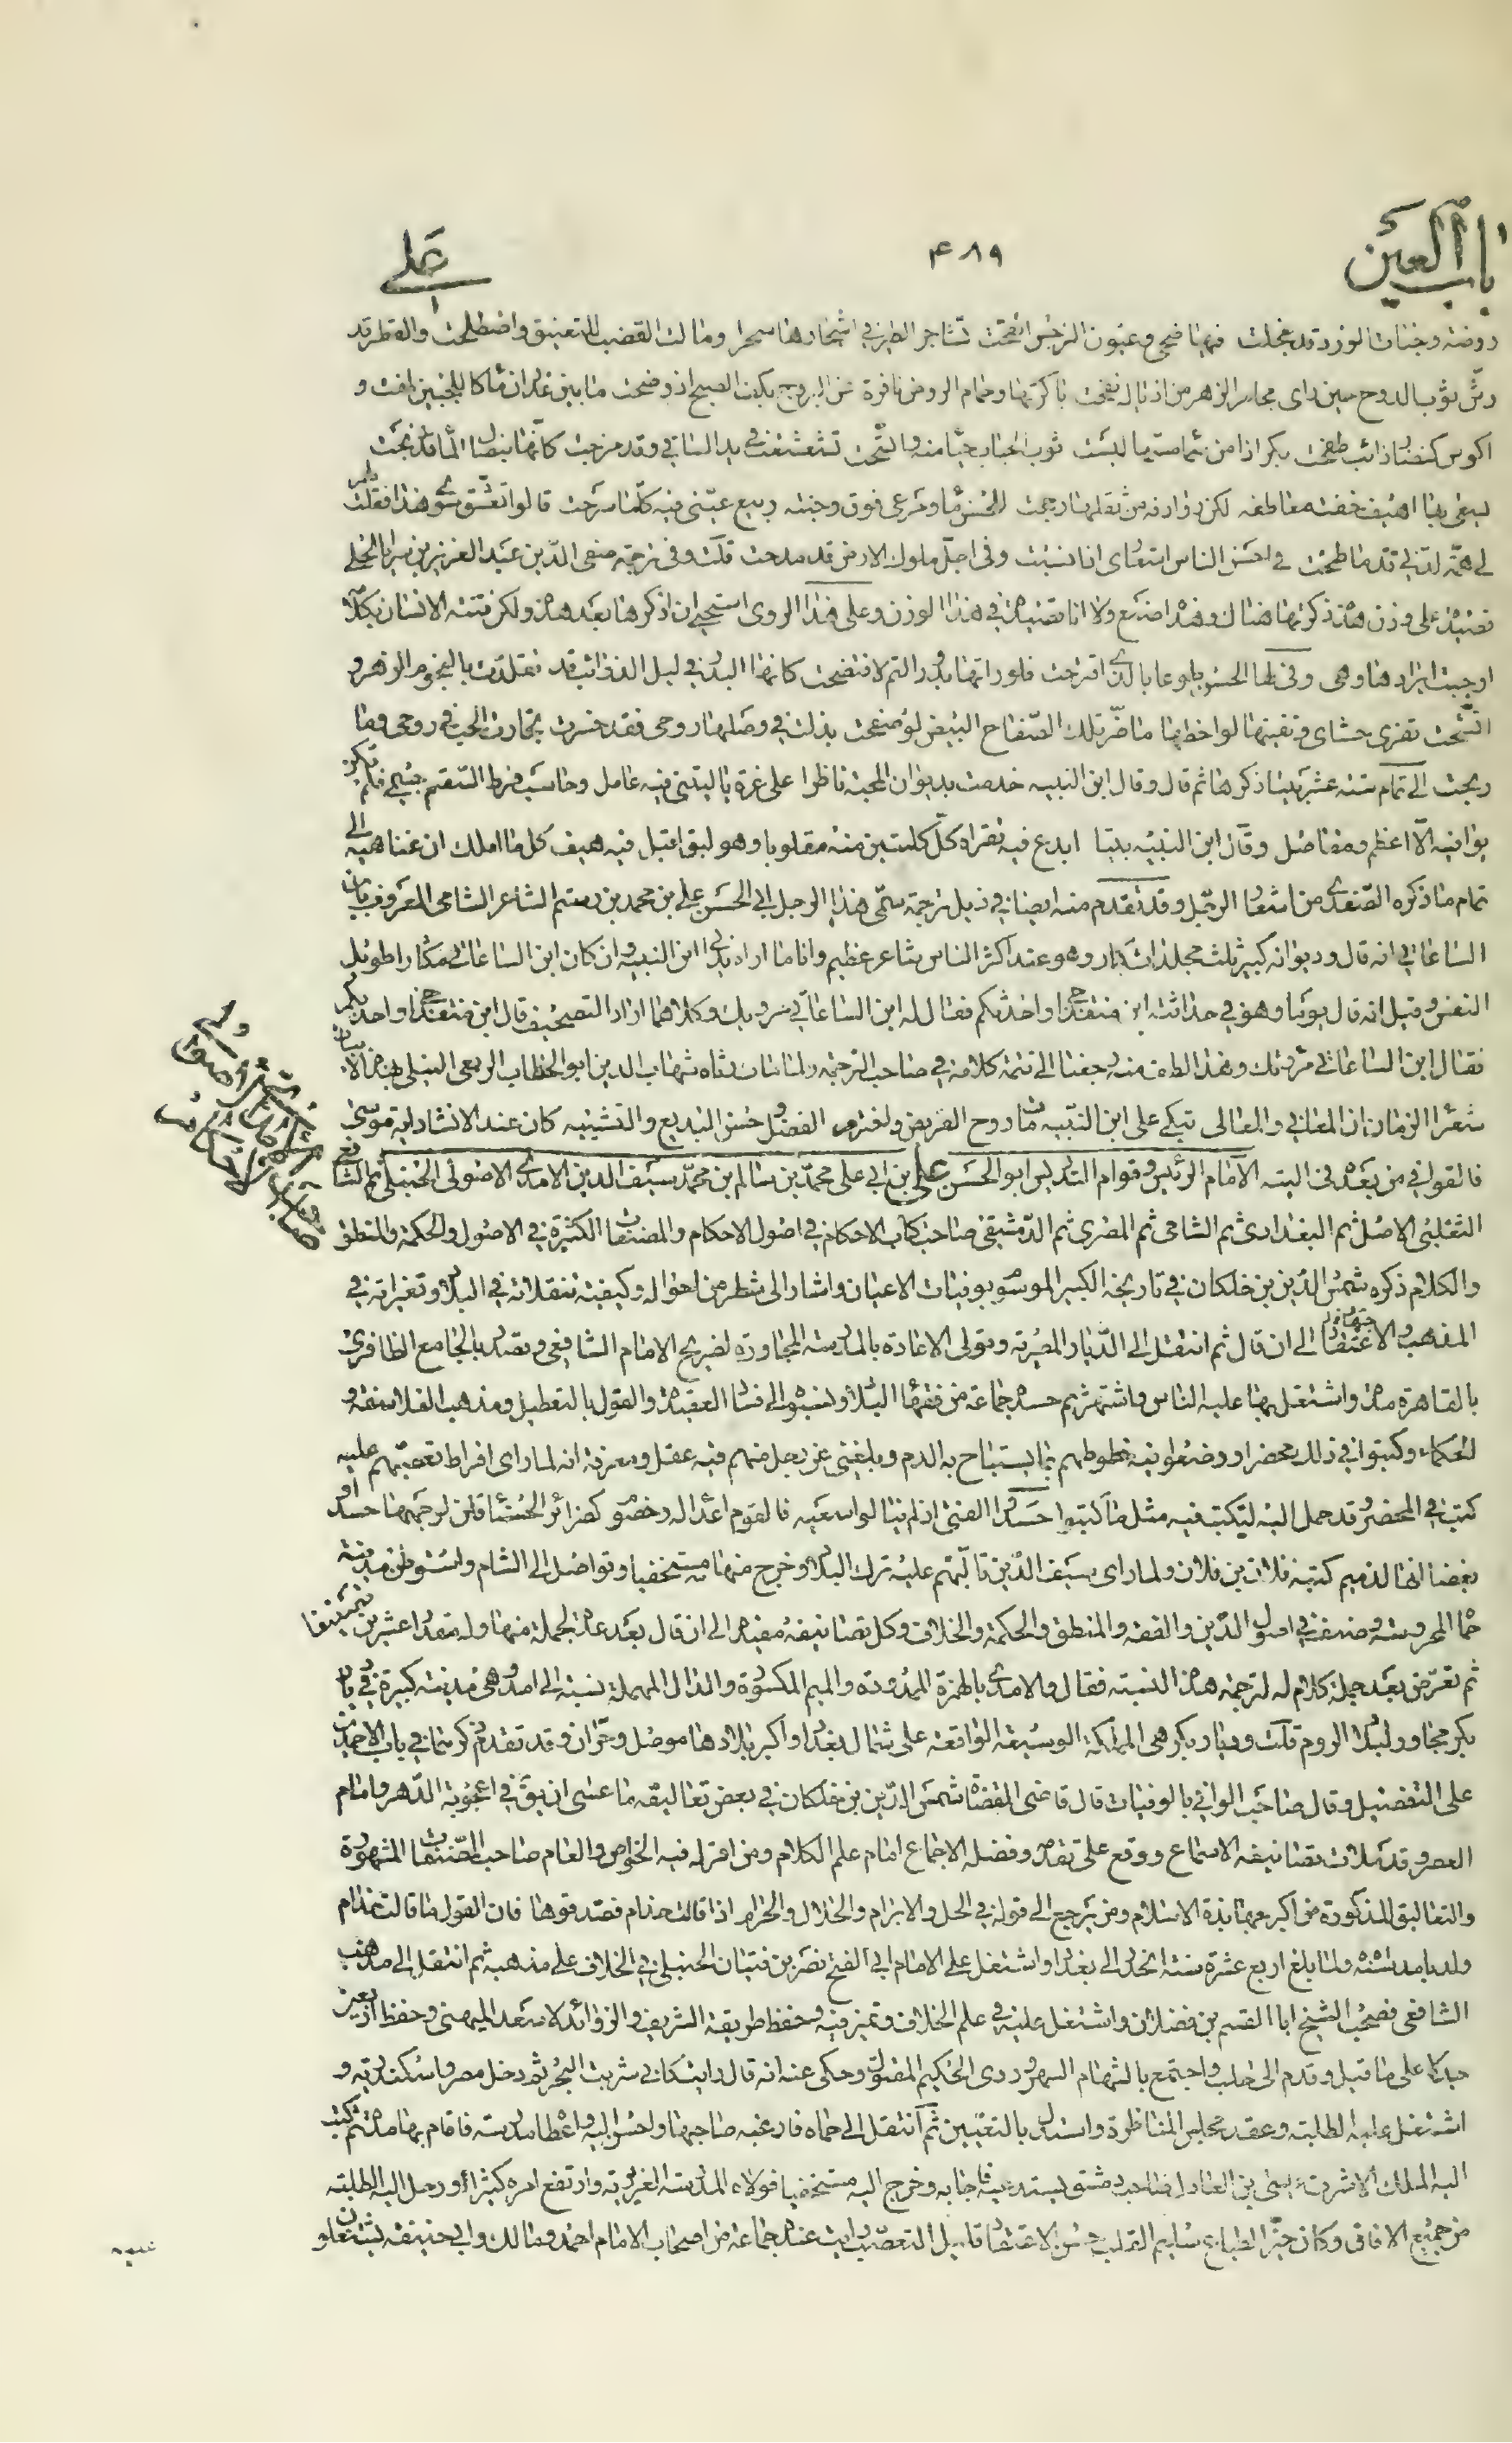 باب العين ۴۸۹ على
روضة وجنات الورد قد خجلت فيها ضحى وعيون النرجس انفتحت تشاجر الطير في اشجارها سحرا ومالت القضب للتعنيق واصطلحت والقطر قد
رش ثوب الدوح حين راى مجامر الزهر من اذياله نفحت باكرتها وحمام الروض نافرة عن البروج بكف الصبح اذ وضحت ما بين غدران ماء كاللجين و
اكوس كنضار ذائب طفحت بكر اذا من ماء لبست ثوب الحباب حياء منه واتشحت تشعشعت في يد الساقي وقد مزجت كانها بنصال الماء قد ذبحت
يسعى بها اهيف خفت معاطفه لكن روادفه من ثقلها رجحت للحسن ماء ومرعى فوق وجنته ربيع عيني فيه كلما سرحت قالوا تعشق سوى هذا فقلت لهم
لي همة لدني قط ما طمحت في احسن الناس اشعارى اذا نسبت وفي اجل ملوك الارض قد مدحت قلت وفي ترجمة صفي الدين عبد العزيز بن سرايا الحلي
قصيدة على وزن هذه ذكرتها هناك وهذه اصنع ولا انا قصيدة في هذا الوزن وعلى هذا الروي استحيى ان اذكرها بعد هذه ولكن فتنة الانسان بكلامه
اوجبت ايرادها وهي وفي لها الحسن طوعا بالذي اقترحت فلو راتها بدور التم لافتضحت كانها البدر في ليل الذوائب قد تقلدت بالنجوم الزهر و
اتشحت تفري حشاى وتفنيها لواحظها ما ضر تلك الصفاح البيض لو صفحت بذلت في وصلها روحي فقد خسرت تجارت الحب في روحي وما
ربحت الى تمام ستة عشر بيتا ذكرها ثم قال وقال ابن النبيه خدمت بديوان المحبة ناظرا على غرة ياليتني فيه عامل وحاسب فرط السقم جسمي فلم يكن
يوافيه الا اعظم ومفاصل وقال ابن النبيه بيتا ابدع فيه تقراه كل كلمتين منه مقلوبا وهو لبق اقبل فيه هيف كل ما املك ان غنا هبه الى
تمام ما ذكره الصفدي من اشعار الرجل وقد تقدم منه ايضا في ذيل ترجمة سمي هذا الرجل ابي الحسن علي بن محمد بن رستم الشاعر الشامي المعروف بابن
الساعاتي انه قال وديوانه كبير ثلث مجلدات كبار وهو عند اكثر الناس شاعر عظيم وانا ما اراه يداني ابن النبيه وان كان ابن الساعاتي مكثارا طويل
النفس وقيل انه قال يوما وهو في حداثته ابن منقذ واخذتكم فقال له ابن الساعاتي وكلاهما اراد التصحيف قال ابن منقذ
فقال ابن الساعاتي وهذا الطف منه رجعنا الى تتمة كلامه في صاحب الترجمة ولما مات رثاه شهاب الدين ابو الخطاب الربعي النيلي بهذه الابيات
شعراء الزمان ان المعاني والمعالي تبكي على ابن النبيه مات روح القريض واخترم الفضل حسن البديع والتشبيه كان عند الانشاد اية موسى
فالقوافي من بعده في التيه الامام الرئيس وقوام التدريس ابو الحسن علي بن ابي علي محمد بن سالم بن محمد سيف الدين الامدي الاصولي الحنبلي ثم الشافعي
الثعلبي الاصل ثم البغدادي ثم الشامي ثم المصري ثم الدمشقي صاحب كتاب الاحكام في اصول الاحكام والمصنفات الكثيرة في الاصول والحكمة والمنطق
والكلام ذكره شمس الدين بن خلكان في تاريخه الكبير الموسوم بوفيات الاعيان واشار الى شطر من احواله وكيفية تنقلاته في البلاد وتغيراته في
المذهب والاعتقاد الى ان قال ثم انتقل الى الديار المصرية وتولى الاعادة بالمدرسة المجاورة لضريح الامام الشافعي وتصدر بالجامع الظافري
بالقاهرة مدة واشتغل بها عليه الناس واشتهر ثم حسده جماعة من فقهاء البلاد ونسبوه الى فساد العقيدة والقول بالتعطيل ومذهب الفلاسفة و
الحكماء وكتبوا في ذلك محضرا ووضعوا فيه خطوطهم بما يستباح به الدم وبلغني عن رجل منهم فيه عقل ومعرفة انه لما راى افراط تعصبهم عليه
كتب في المحضر وقد حمل اليه ليكتب فيه مثل ما كتبوا حسدوا الفتى اذ لم ينالوا سعيه فالقوم اعداء له وخصوم كضرائر الحسناء قلن لوجهها حسدا و
بغضا انها لدميم كتبه فلان بن فلان ولما راى سيف الدين تالبهم عليه ترك البلاد وخرج منها مستخفيا وتواصل الى الشام واستوطن مدينة
حماة المحروسة وصنف في اصول الدين والفقه والمنطق والحكمة والخلاف وكل تصانيفه مفيدة الى ان قال بعد عده لجملة منها وله مقدار عشرين تصنيفا
ثم تعرض بعد جملة كلام له لترجمة هذه النسبة فقال والامدي بالهمزة الممدودة والميم المكسورة والدال المهملة نسبة الى امد وهي مدينة كبيرة في ديار
بكر مجاورة لبلاد الروم قلت وديار بكر هي المملكة الوسيعة الواقعة على شمال بغداد واكبر بلادها موصل وحران وقد تقدم ذكرهما في باب الاحمدين
على التفصيل وقال صاحب الوافي بالوفيات قال قاضي القضاة شمس الدين بن خلكان في بعض تعاليقه ما عسى ان يق في اعجوبة الدهر وامام
العصر وقد ملات تصانيفه الاسماع ووقع على تقدمه وفضله الاجماع امام علم الكلام ومن اقر له فيه الخواص والعام صاحب المصنفات المشهورة
والتعاليق المذكورة من اكبر جهابذة الاسلام ومن يرجع الى قوله في الحل والابرام والحلال والحرام اذا قالت حذام فصدقوها فان القول ما قالت حذام
ولد بامد سنة ولما بلغ اربع عشرة سنة انحدر الى بغداد واشتغل على الامام ابي الفتح نصر بن فتيان الحنبلي في الخلاف على مذهبه ثم انتقل الى مذهب
الشافعي فصحب الشيخ ابا القسم بن فضلان واشتغل عليه في علم الخلاف وتميز فيه وحفظ طريقة الشريف والزوائد لاسعد الميهني وحفظ اربعين
جدلا على ما قيل وقدم الى حلب واجتمع بالشهاب السهروردي الحكيم المقتول وحكى عنه انه قال رايت كاني شربت البحر ثم دخل مصر واسكندرية و
اشتغل عليه الطلبة وعقد مجلس المناظرة واستدل بالتعيين ثم انتقل الى حماة فارغبه صاحبها واحسن اليه واعطاه مدرسة فاقام بها مدة ثم كتب
اليه الملك الاشرف موسى بن العادل صاحب دمشق يستدعيه فاجابه وخرج اليه مستخفيا فولاه المدرسة العزيزية وارتفع امره كثيرا ورحل اليه الطلبة
من جميع الافاق وكان خير الطباع سليم القلب حسن الاعتقاد قليل التعصب رايت عنده جماعة من اصحاب الامام احمد ومالك وابي حنيفة يشتغلون
عليه